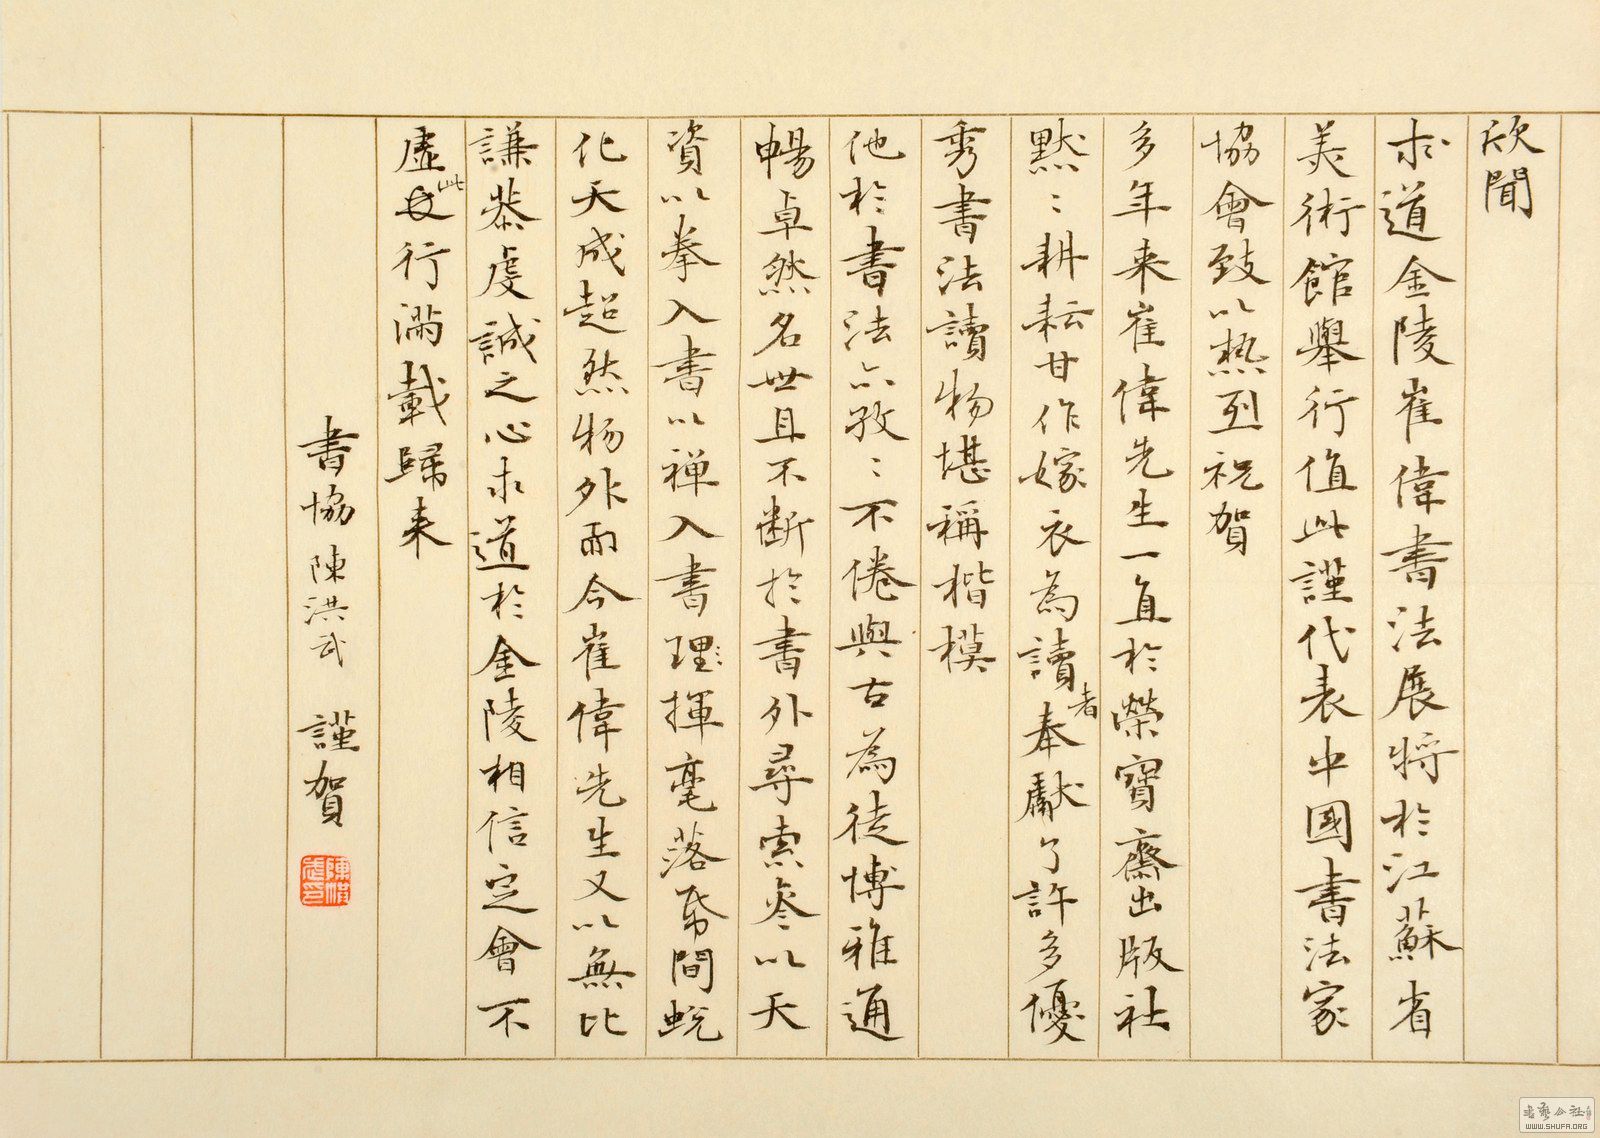 欣聞
求道金陵崔偉書法展将於江蘇省
美術館舉行值此謹代表中國書法家
協會致以热烈祝賀
多年来崔偉先生一直於榮寶齋出版社
默〻耕耘甘作嫁衣為讀者奉獻了許多優
秀書法讀物堪稱楷模
他於書法亦孜〻不倦與古為徒博雅通
暢卓然名世且不斷於書外尋索参以天
資以拳入書以禅入書理揮毫落帋間蜕
化天成超然物外而今崔偉先生又以無比
謙恭虔誠之心求道於金陵相信定會不
虛此行滿載歸来
書協 陳洪武 謹賀
陳洪武印
書藝公社
WWW.SHUFA.ORG